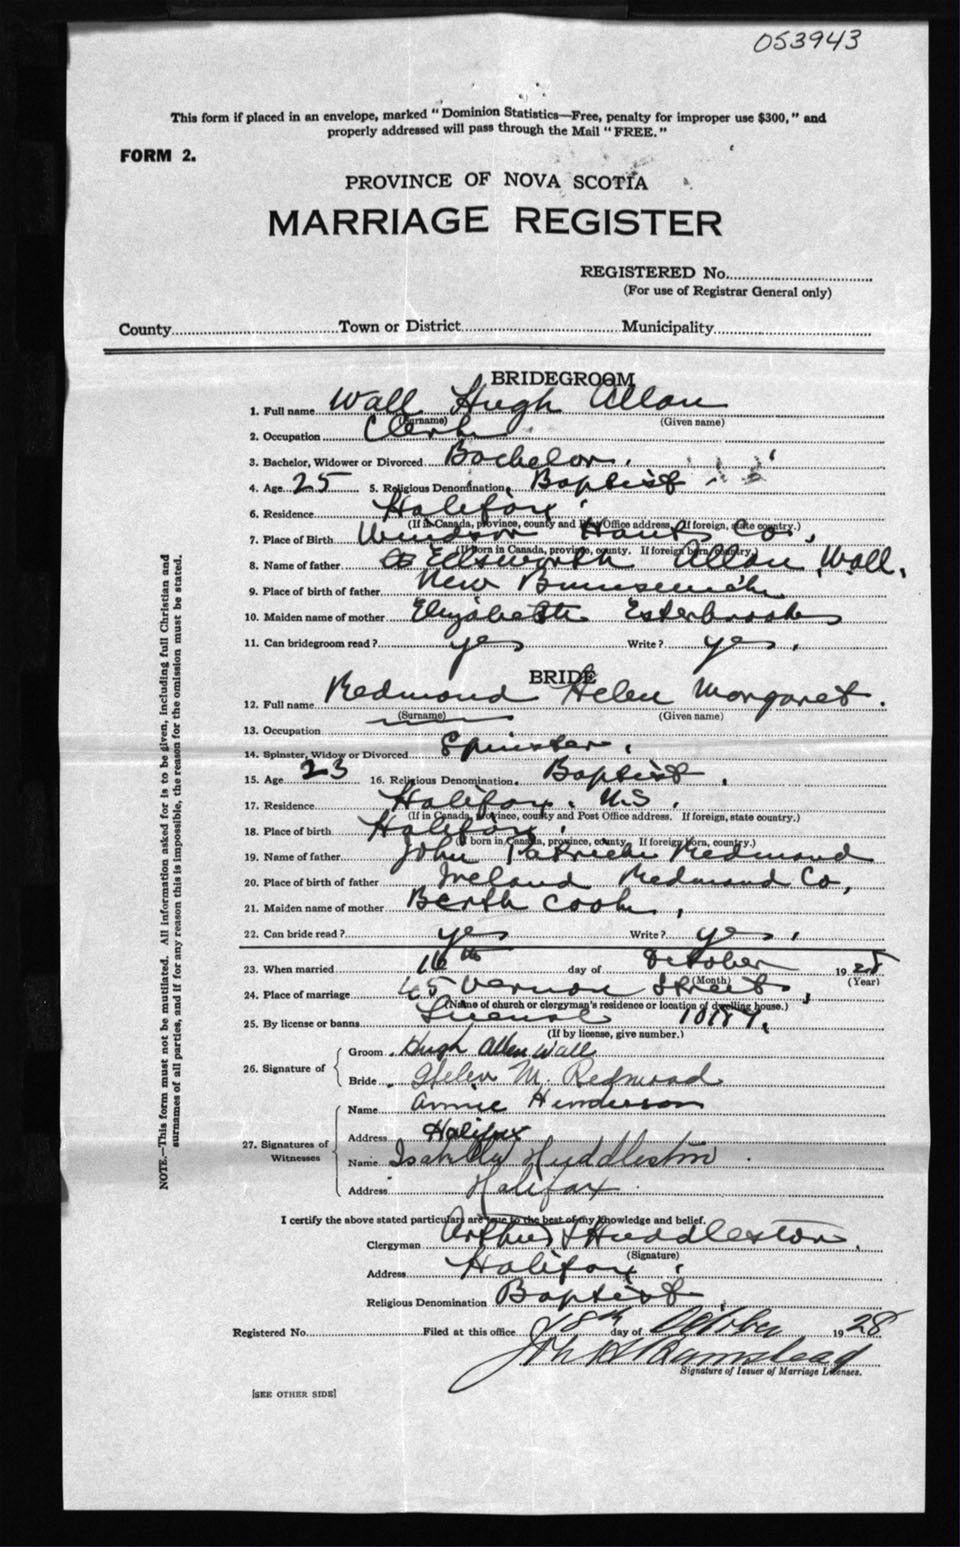 053943
This form if placed in an envelope, marked "Dominion Statistics—Free, penalty for improper use $300," and
properly addressed will pass through the Mail "FREE."
FORM 2.
PROVINCE OF NOVA SCOTIA
MARRIAGE REGISTER
REGISTERED No.
(For use of Registrar General only)
County Town or District Municipality
BRIDEGROOM
1. Full name Wall Hugh Allan
(Surname) (Given name)
2. Occupation Clerk
3. Bachelor, Widower or Divorced Bachelor.
4. Age 25 5. Religious Denomination. Baptist
6. Residence Halifax
(If in Canada, province, county and Post Office address. If foreign, state country.)
7. Place of Birth Windsor Hants Co.,
(If born in Canada, province, county. If foreign born, country.)
8. Name of father Ellsworth Allan Wall.
9. Place of birth of father New Brunswick
10. Maiden name of mother Elizabeth Esterbrooks
11. Can bridegroom read? yes Write? yes.
BRIDE
12. Full name Redmond Helen Margaret.
(Surname) (Given name)
13. Occupation
14. Spinster, Widow or Divorced Spinster.
15. Age 23 16. Religious Denomination. Baptist.
17. Residence Halifax. N.S.
(If in Canada, province, county and Post Office address. If foreign, state country.)
18. Place of birth Halifax.
(If born in Canada, province, county. If foreign born, country.)
19. Name of father John Patrick Redmond
20. Place of birth of father Ireland Redmond Co,
21. Maiden name of mother Berth Cook,
22. Can bride read? yes Write? yes.
23. When married 16th day of October 1928
(Month) (Year)
24. Place of marriage 45 Vernon Street,
(Name of church or clergyman's residence or location of dwelling house.)
25. By license or banns License
(If by license, give number.)
26. Signature of Groom Hugh Allen Wall
Bride Helen M. Redmond
27. Signatures of Witnesses Name Annie Henderson
Address Halifax
Name Isabella Huddleston
Address Halifax
I certify the above stated particulars are true to the best of my knowledge and belief.
Clergyman Arthur Huddleston.
(Signature)
Address Halifax.
Religious Denomination Baptist.
Registered No. Filed at this office 18th day of October 1928
Signature of Issuer of Marriage Licenses.
[SEE OTHER SIDE]
NOTE.—This form must not be mutilated. All information asked for is to be given, including full Christian and
surnames of all parties, and if for any reason this is impossible, the reason for the omission must be stated.